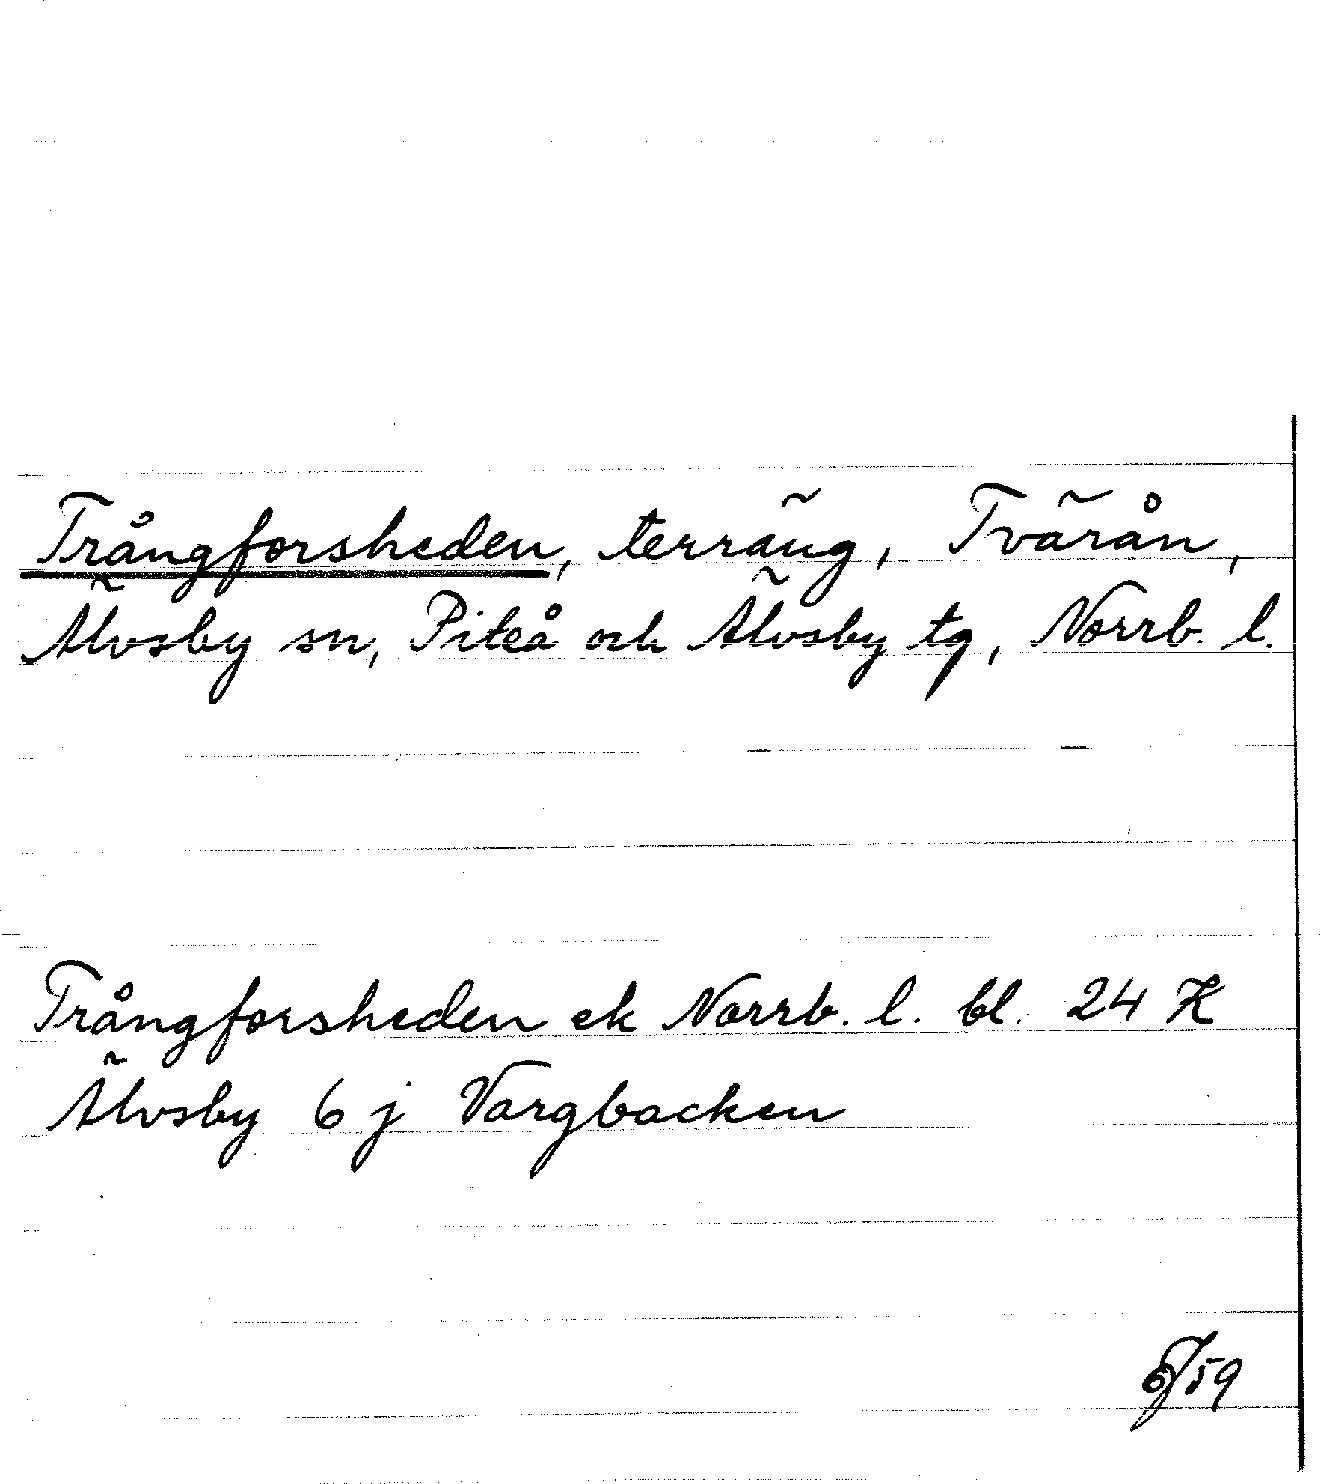 Trångforsheden, terräng, Tvärån,
Älvsby sn, Piteå och Älvsby tg, Norrb. l.
Trångforsheden ek Norrb. l. bl. 24 K
Älvsby 6 j Vargbacken
/59